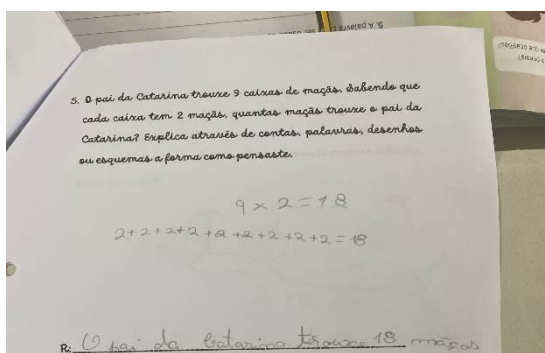 5. A palavra
5. O pai da Catarina trouxe 9 caixas de maçãs. Sabendo que
cada caixa tem 2 maçãs, quantas maçãs trouxe o pai da
Catarina? Explica através de contas, palavras, desenhos
ou esquemas a forma como pensaste.
9 × 2 = 18
2+2+2+2+2+2+2+2+2=18
R: O pai da Catarina trouxe 18 maças